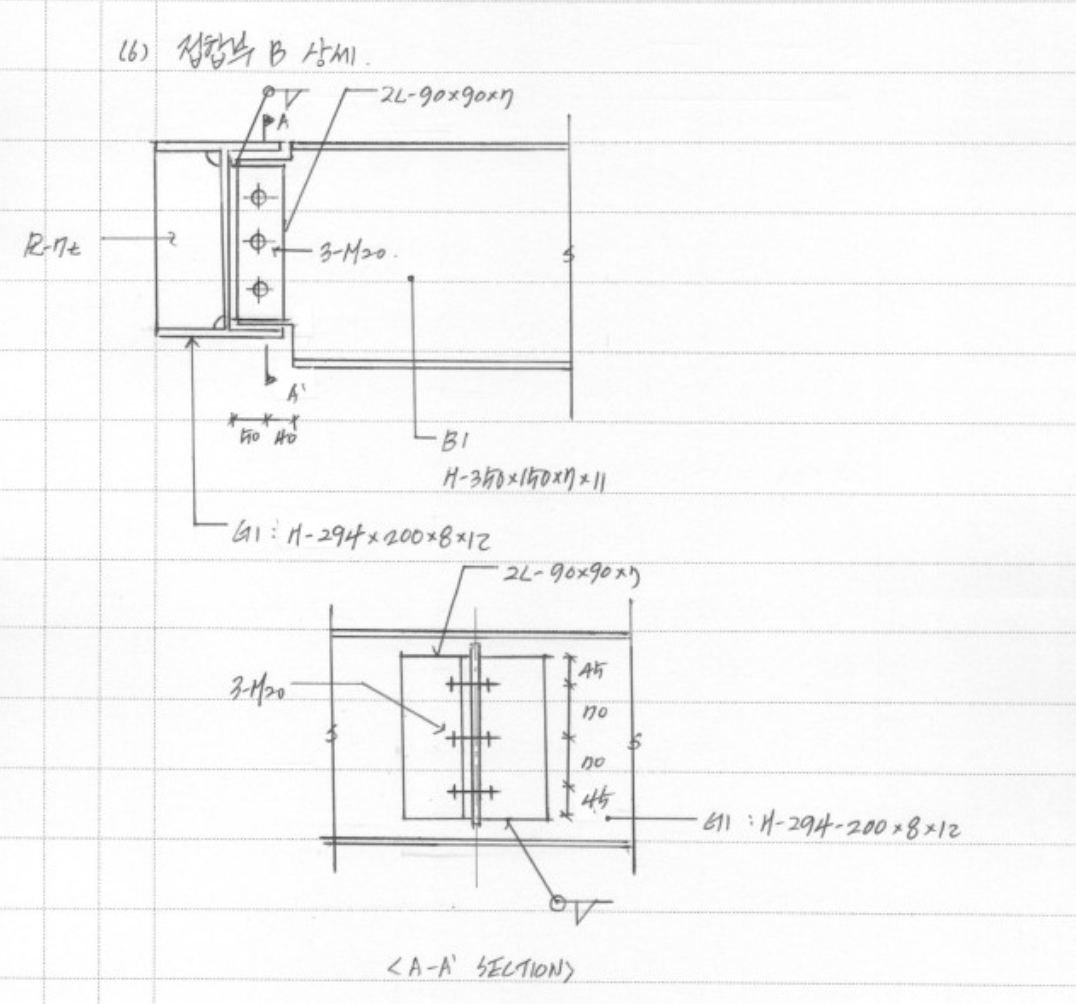 (6) 접합부 B 상세.
2L-90×90×7
A
PL-7t
3-M20.
A'
50 40
B1
H-350×150×7×11
G1 : H-294×200×8×12
2L-90×90×7
45
3-M20
70
70
45
G1 : H-294-200×8×12
<A-A' SECTION>